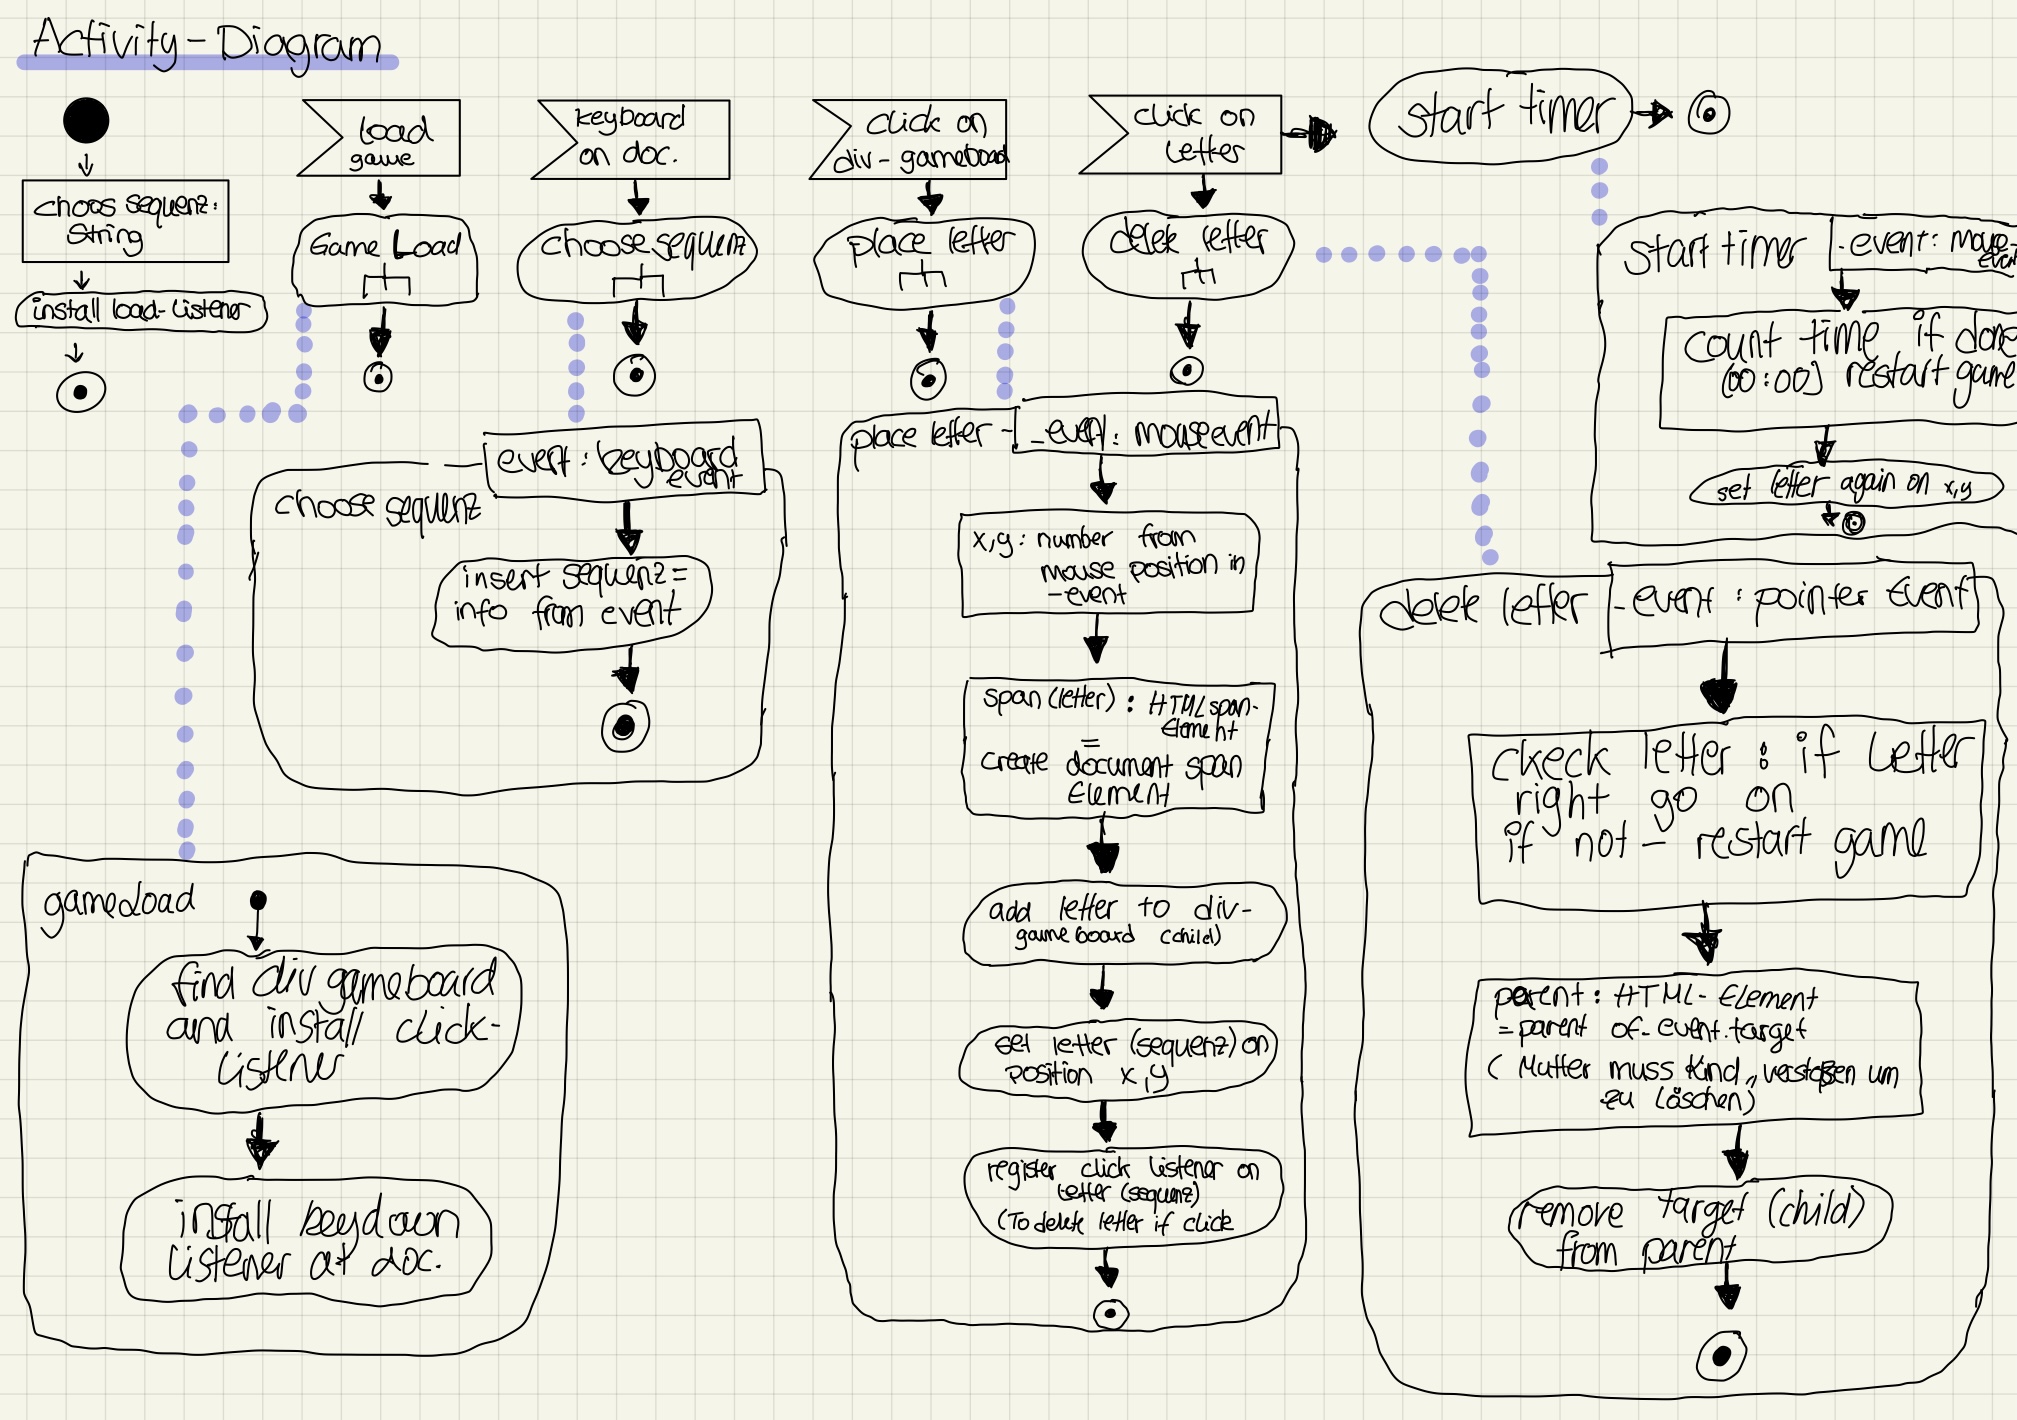 Activity-Diagram
choos sequenz:
String
install load-Listener
load
game
Game Load
keyboard
on doc.
choose sequenz
click on
div-gameboad
place letter
click on
letter
delete letter
start timer
start timer
-event: mouse-
event
count time if done
(00:00) restart game
set letter again on x,y
event: keyboard
event
choose sequenz
insert sequenz=
info from event
place letter -
_event: mouseevent
x,y: number from
mouse position in
-event
span(letter): HTMLspan-
Element
=
create document span
Element
add letter to div-
gameboard (child)
set letter (sequenz) on
position x,y
register click Listener on
letter (sequenz)
(To delete letter if click
delete letter
-event: pointer Event
ckeck letter: if letter
right go on
if not - restart game
parent: HTML-Element
=parent of-event.target
(Mutter muss Kind verstoßen um
zu löschen)
remove target (child)
from parent
gameLoad
find div gameboard
and install click-
Listener
install keydown
Listener at doc.